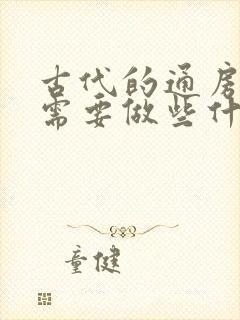 古代的通房
需要做些什
童健